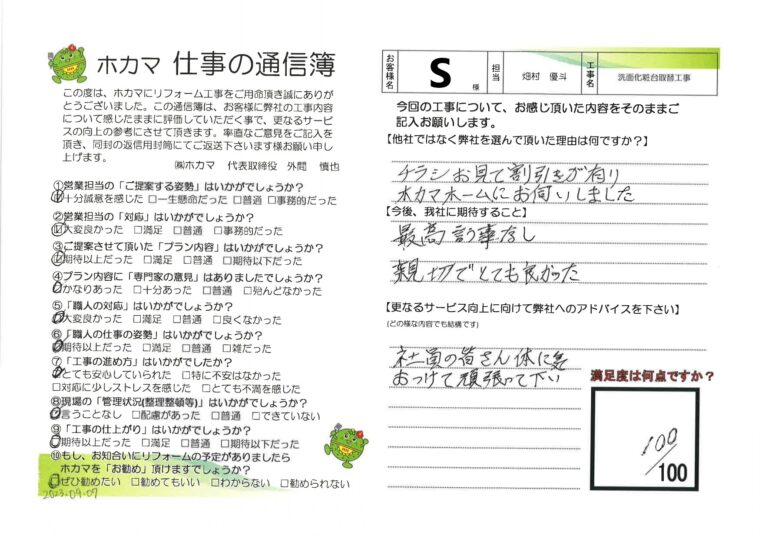 ホカマ 仕事の通信簿
この度は、ホカマにリフォーム工事をご用命頂き誠にありが
とうございました。この通信簿は、お客様に弊社の工事内容
について感じたままに評価していただく事で、更なるサービ
スの向上の参考にさせて頂きます。率直なご意見をご記入を
頂き、同封の返信用封筒にてご返送下さいます様お願い申し
上げます。
㈱ホカマ 代表取締役 外間 慎也
①営業担当の「ご提案する姿勢」はいかがでしょうか?
☑十分誠意を感じた □一生懸命だった □普通 □事務的だった
②営業担当の「対応」はいかがでしょうか?
☑大変良かった □満足 □普通 □事務的だった
③ご提案させて頂いた「プラン内容」はいかがでしょうか?
☑期待以上だった □満足 □普通 □期待以下だった
④プラン内容に「専門家の意見」はありましたでしょうか?
☑かなりあった □十分あった □普通 □殆んどなかった
⑤「職人の対応」はいかがでしょうか?
☑大変良かった □満足 □普通 □良くなかった
⑥「職人の仕事の姿勢」はいかがでしょうか?
☑期待以上だった □満足 □普通 □雑だった
⑦「工事の進め方」はいかがでしたか?
☑とても安心していられた □特に不安はなかった
□対応に少しストレスを感じた □とても不満を感じた
⑧現場の「管理状況(整理整頓等)」はいかがでしょうか?
☑言うことなし □配慮があった □普通 □できていない
⑨「工事の仕上がり」はいかがでしょうか?
☑期待以上だった □満足 □普通 □期待以下だった
⑩もし、お知合いにリフォームの予定がありましたら
ホカマを「お勧め」頂けますでしょうか?
☑ぜひ勧めたい □勧めてもいい □わからない □勧められない
2023.09.07
お客様名 S 様 担当 畑村 優斗 工事名 洗面化粧台取替工事
今回の工事について、お感じ頂いた内容をそのままご
記入お願いします。
【他社ではなく弊社を選んで頂いた理由は何ですか?】
チラシお見て割引きが有り
ホカマホームにお伺いしました
【今後、我社に期待すること】
最高言う事なし
親切でとても良かった
【更なるサービス向上に向けて弊社へのアドバイスを下さい】
(どの様な内容でも結構です)
社員の皆さん体に気
おつけて頑張って下い
満足度は何点ですか?
100
/100